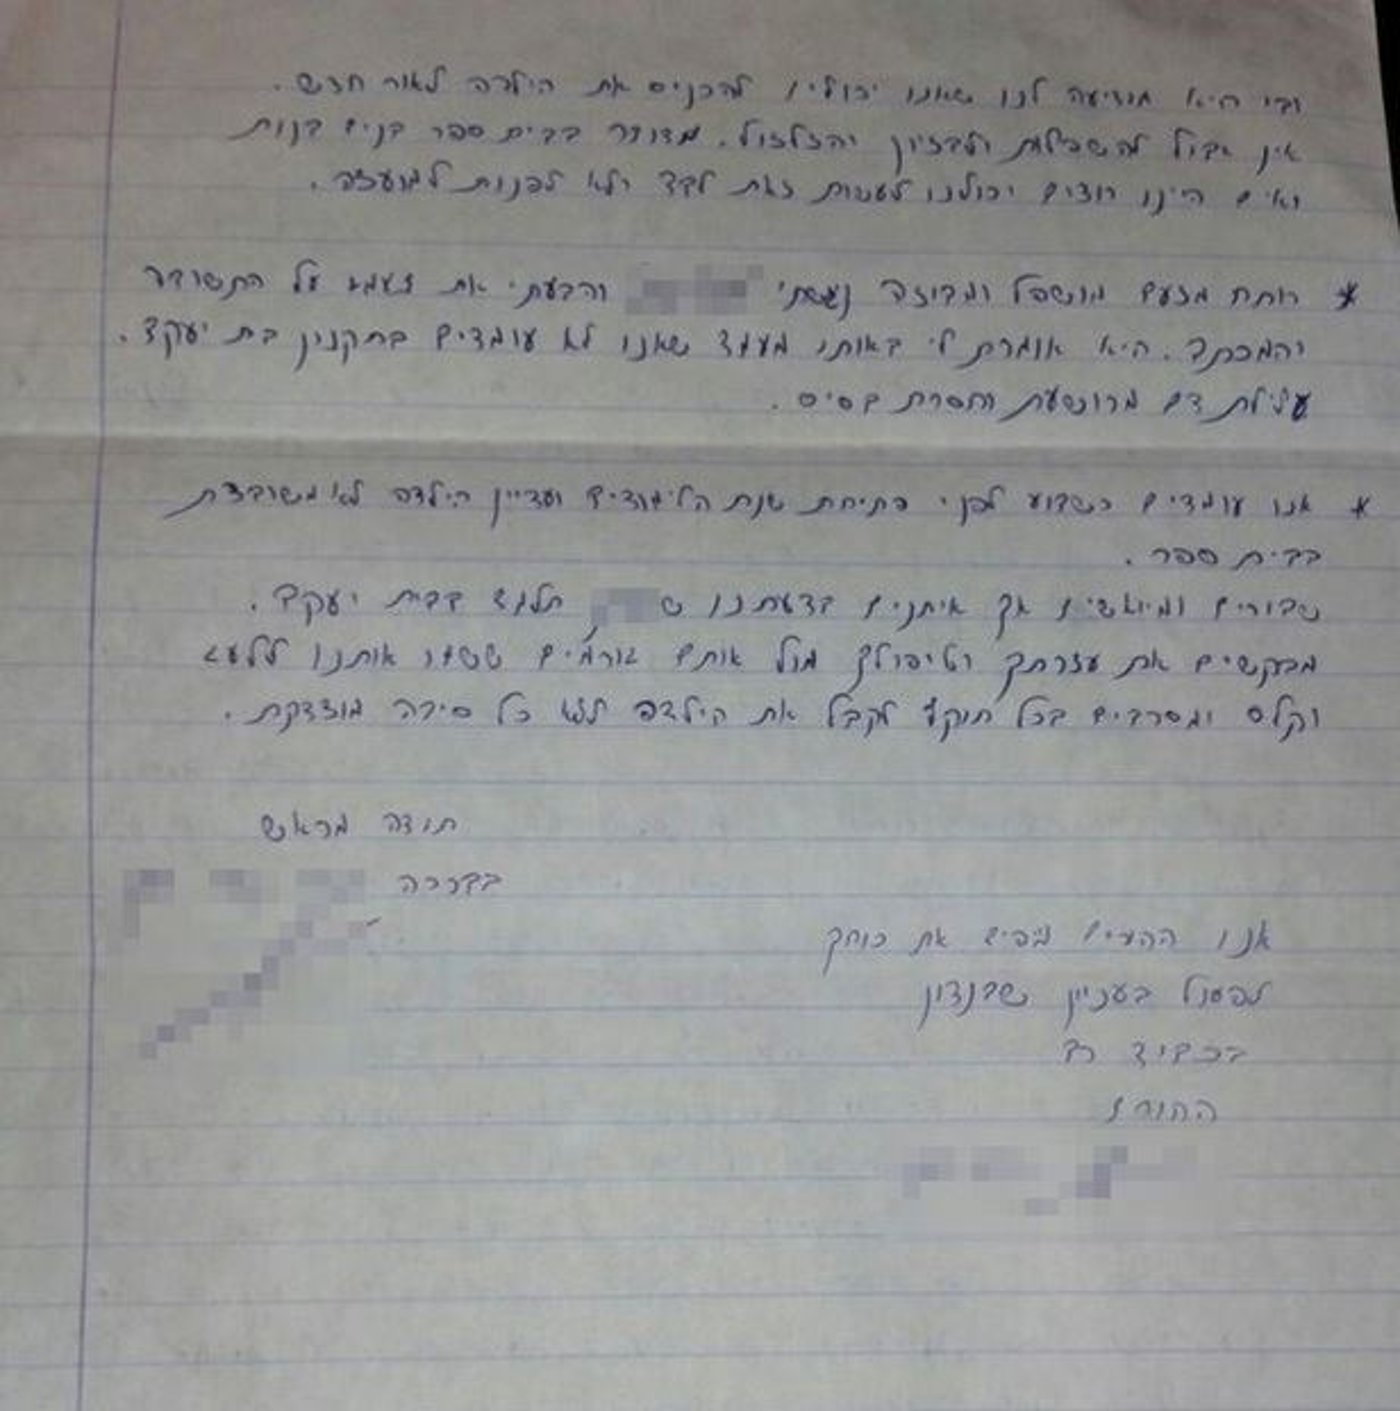 ובו היא מודיעה לנו שאנו יכולים להכניס את הילדה לאור חדש.
אין גבול להשפלות ולבזיון והזלזול. מדובר בבית ספר בנים בנות
ואים היינו רוצים יכולנו לעשות זאת לבד ולא לפנות למועצה.
* רותח מזעם מושפל ומבוזה נגשתי והבעתי את זעמי על התשובה
והמכתב. היא אומרת לי באותו מעמד שאנו לא עומדים בתקנון בית יעקב.
עלילת דם מרושעת וחסרת בסיס.
* אנו עומדים כשבוע לפני פתיחת שנת הלימודים ועדיין הילדה לא משובצת
בבית ספר.
שבורים ומיואשים אך איתנים בדעתנו ש תלמד בבית יעקב.
מבקשים את עזרתך וטיפולך מול אותם גורמים ששמו אותנו ללעג
וקלס ומסרבים בכל תוקף לקבל את הילדה ללא כל סיבה מוצדקת.
תודה מראש
בברכה
אנו את כוחך
לפעול בעניין שבנדון
בכבוד רב
ההורים